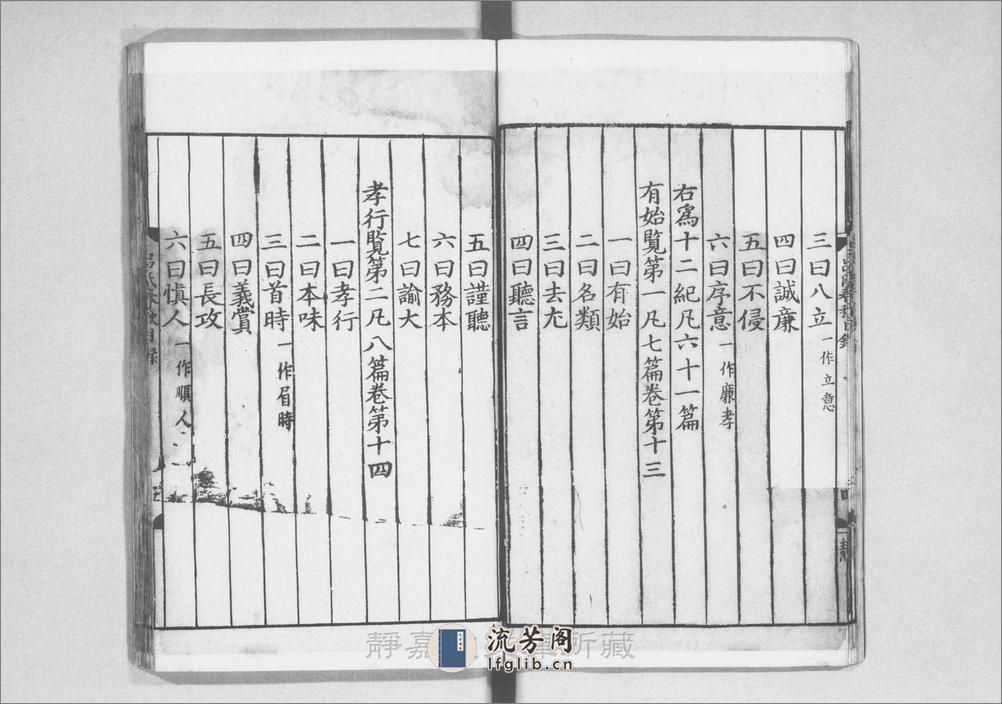 三曰八立一作立意
四曰誠廉
五曰不侵
六曰序意一作廉孝
右爲十二紀凡六十一篇
有始覽第一凡七篇卷第十三
一曰有始
二曰名類
三曰去尤
四曰聽言
五曰謹聽
六曰務本
七曰諭大
孝行覽第二凡八篇卷第十四
一曰孝行
二曰本味
三曰首時一作眉時
四曰義賞
五曰長攻
六曰慎人一作順人
呂氏春秋目錄
流芳阁
lfglib.cn